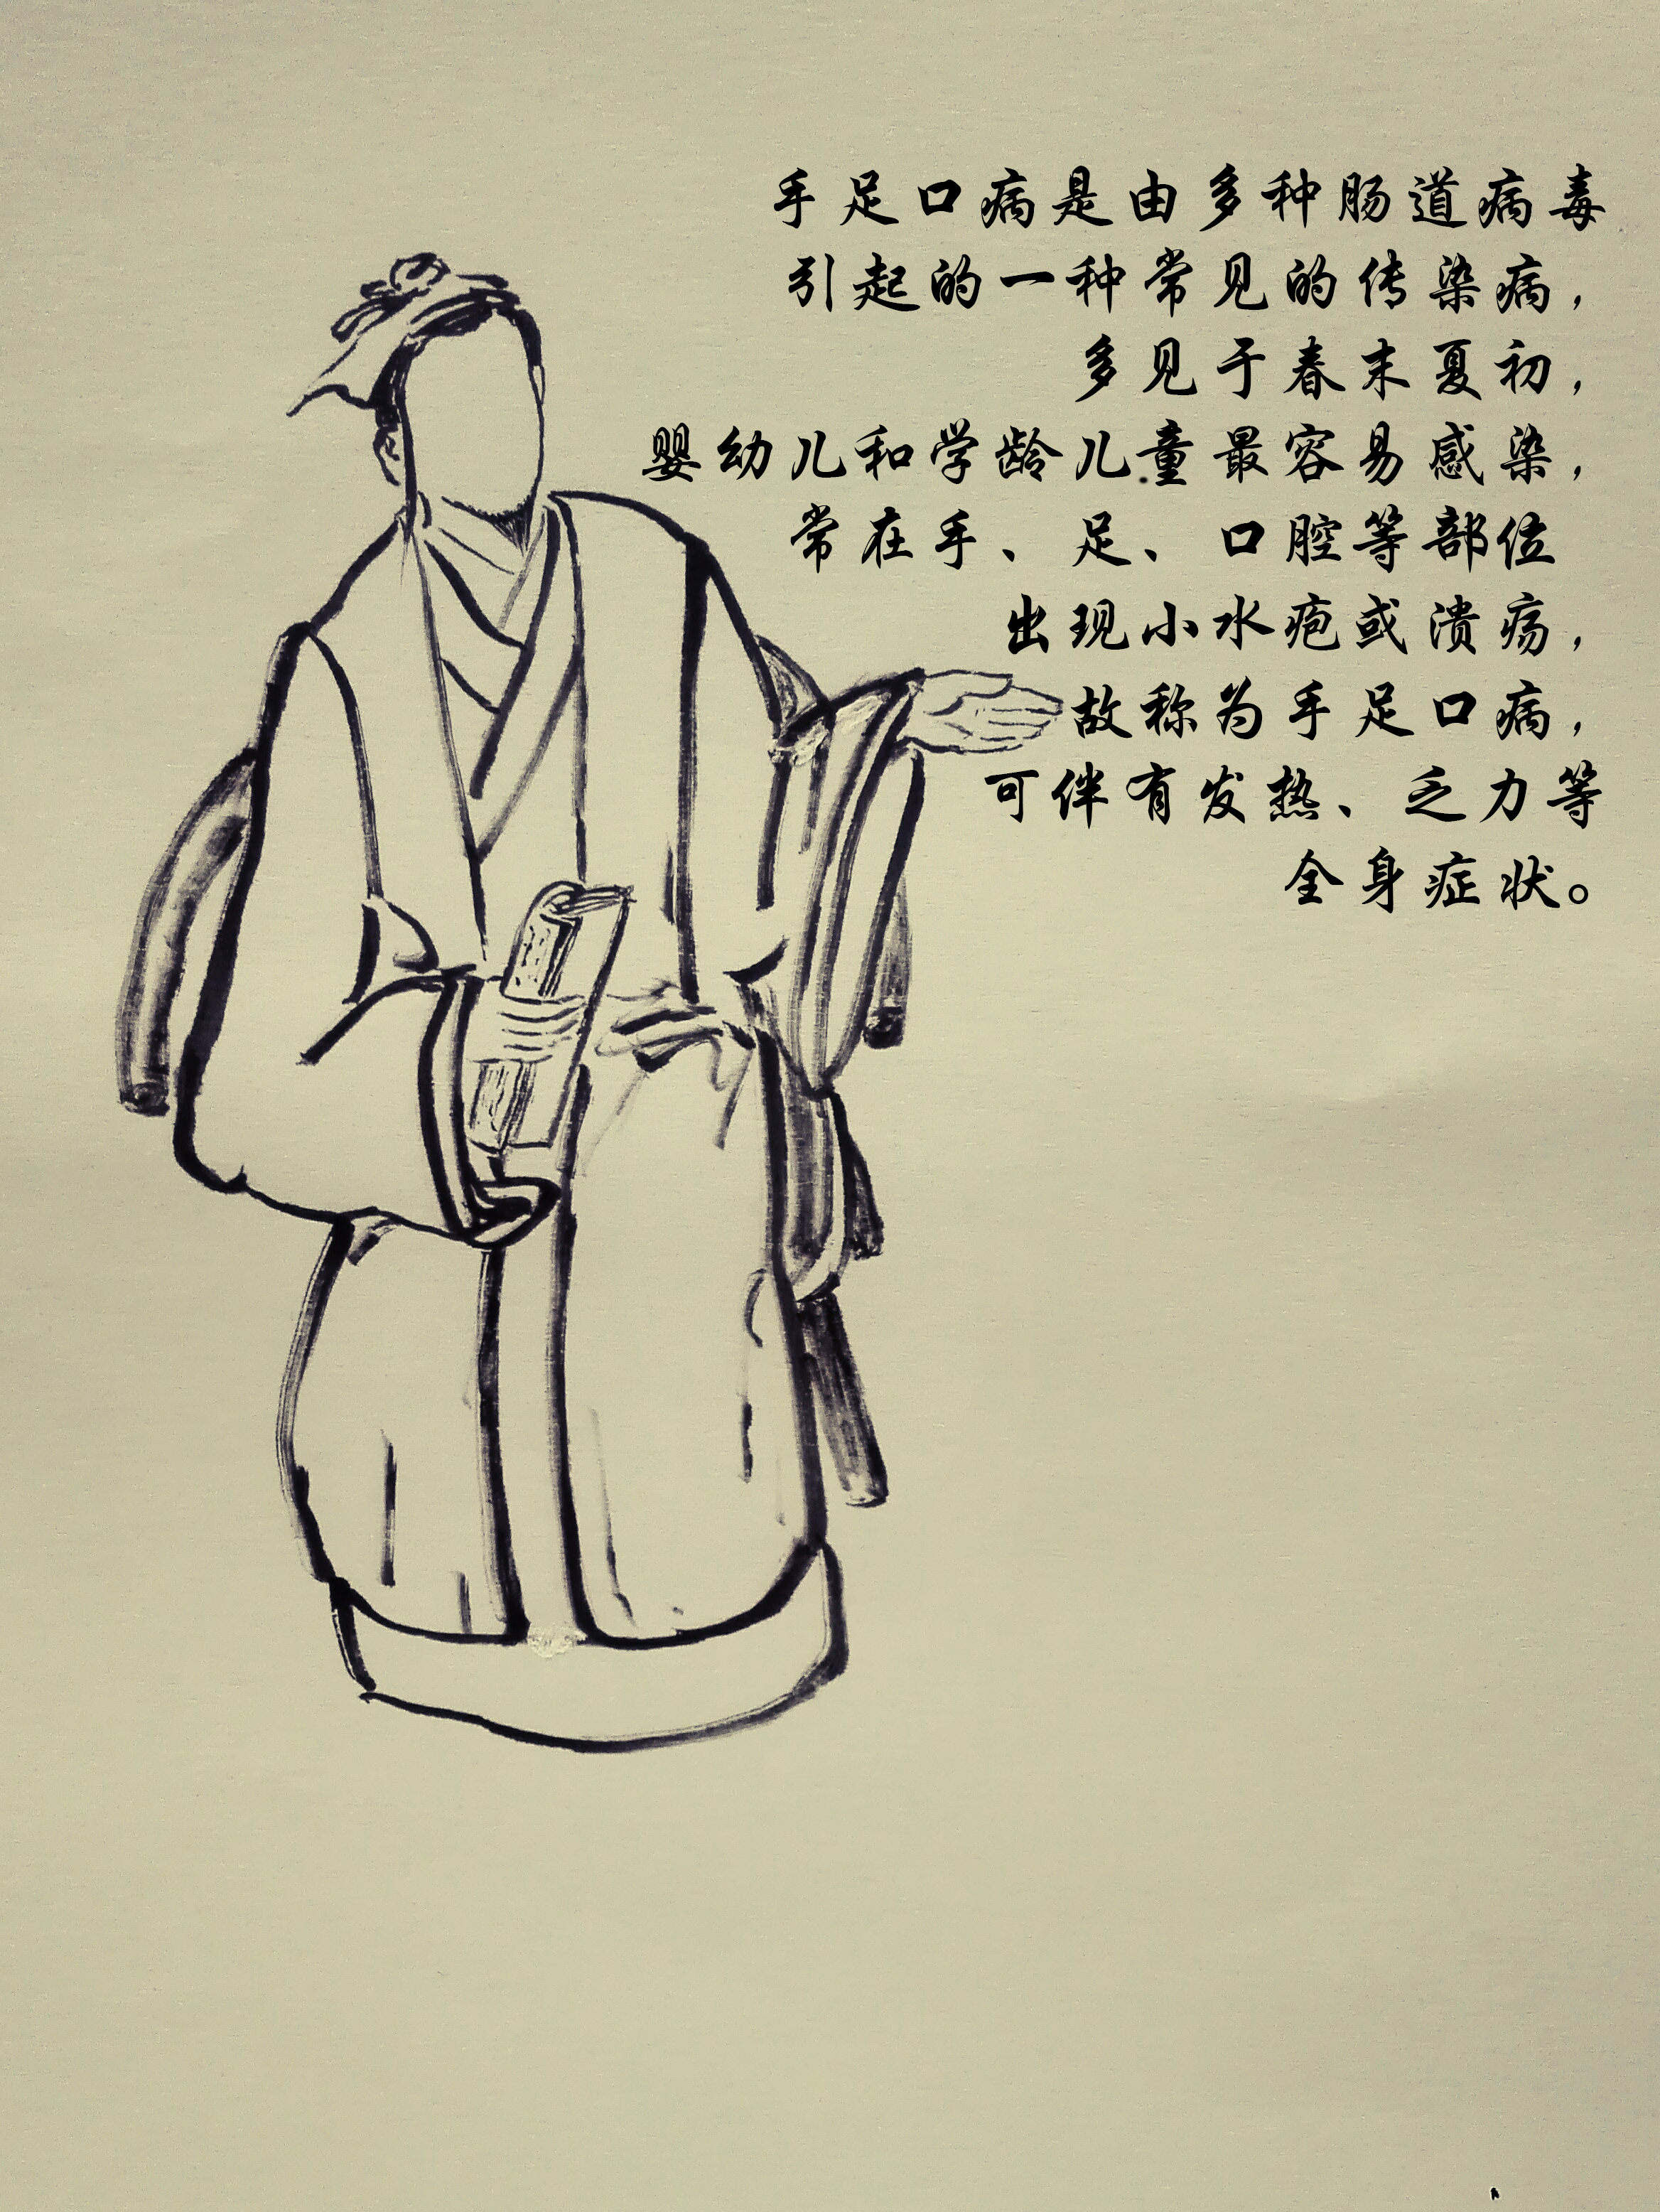 手足口病是由多种肠道病毒
引起的一种常见的传染病，
多见于春末夏初，
婴幼儿和学龄儿童最容易感染，
常在手、足、口腔等部位
出现小水疱或溃疡，
故称为手足口病，
可伴有发热、乏力等
全身症状。